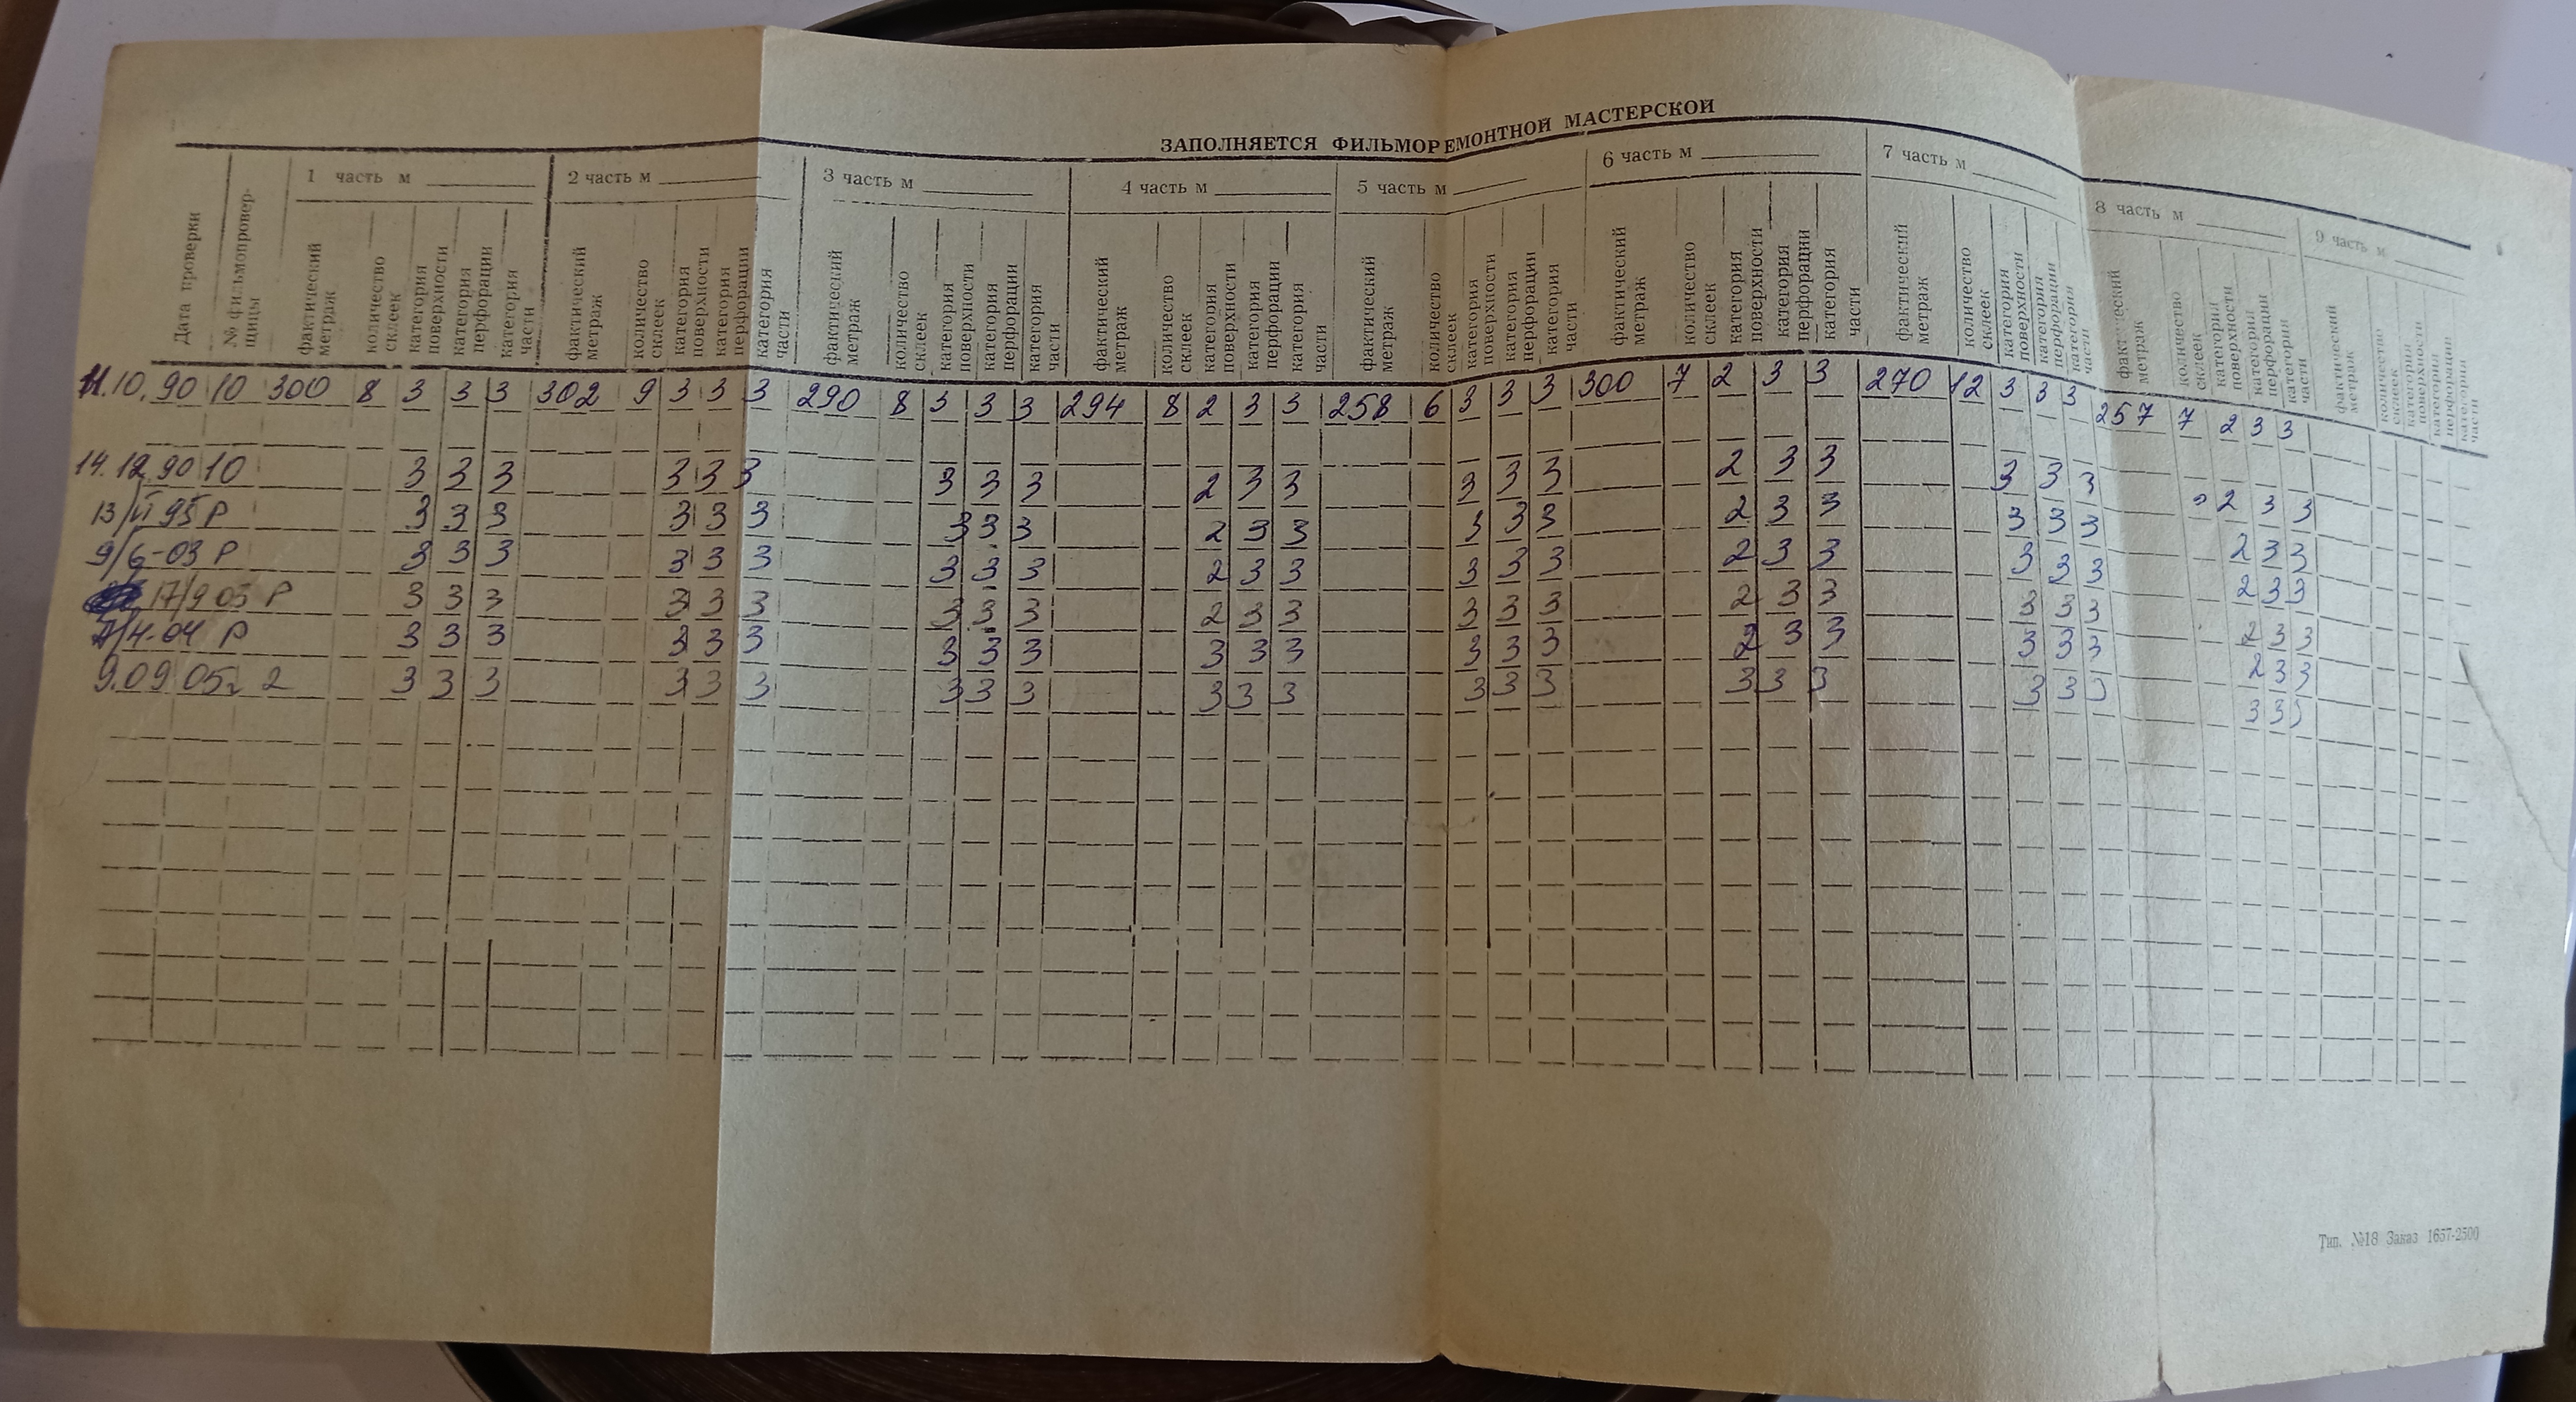 ЗАПОЛНЯЕТСЯ ФИЛЬМОРЕМОНТНОЙ МАСТЕРСКОЙ
Дата проверки № фильмопровер-щицы 1 часть м 2 часть м 3 часть м 4 часть м 5 часть м 6 часть м 7 часть м 8 часть м 9 часть м
фактический метраж количество склеек категория поверхности категория перфорации категория части фактический метраж количество склеек категория поверхности категория перфорации категория части фактический метраж количество склеек категория поверхности категория перфорации категория части фактический метраж количество склеек категория поверхности категория перфорации категория части фактический метраж количество склеек категория поверхности категория перфорации категория части фактический метраж количество склеек категория поверхности категория перфорации категория части фактический метраж количество склеек категория поверхности категория перфорации категория части фактический метраж количество склеек категория поверхности категория перфорации категория части фактический метраж количество склеек категория поверхности категория перфорации категория части
11.10.90 10 300 8 3 3 3 302 9 3 3 3 290 8 3 3 3 294 8 2 3 3 258 6 3 3 3 300 7 2 3 3 270 12 3 3 3 257 7 2 3 3
14.12.90 10 3 3 3 3 3 3 3 3 3 2 3 3 3 3 3 2 3 3 3 3 3 2 3 3
13/II 95 Р 3 3 3 3 3 3 3 3 3 2 3 3 3 3 3 2 3 3 3 3 3 2 3 3
9/6-03 Р 3 3 3 3 3 3 3 3 3 2 3 3 3 3 3 2 3 3 3 3 3 2 3 3
17/9 03 Р 3 3 3 3 3 3 3 3 3 2 3 3 3 3 3 2 3 3 3 3 3 2 3 3
4-04 Р 3 3 3 3 3 3 3 3 3 3 3 3 3 3 3 2 3 3 3 3 3 2 3 3
9.09 05г 2 3 3 3 3 3 3 3 3 3 3 3 3 3 3 3 3 3 3 3 3 3 3 3 3
Тип. №18 Заказ 1657-2500